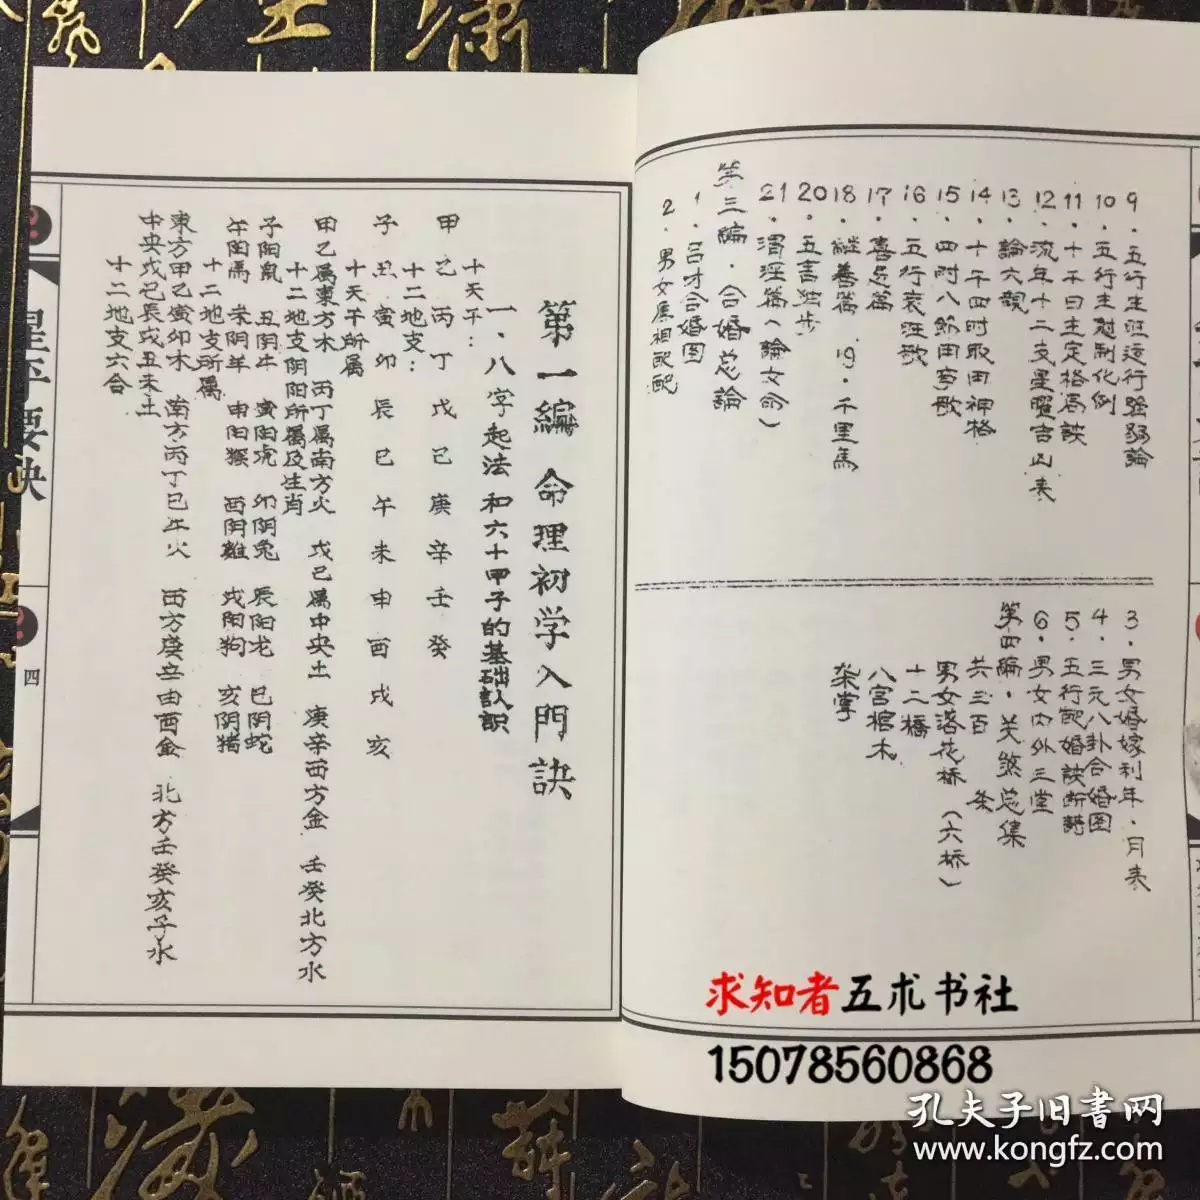 9．五行生旺运行强弱論
10．五行生尅制化例
11．十干日主定格局訣
12．流年十二支星曜吉凶表
13．論六親
14．十干四时取用神格
15．四时八節用事歌
16．五行衰旺歌
17．喜忌篇
18．継善篇 19．千里馬
20．五言独步
21．渭泾篇（論女命）
第三編．合婚总論
1．吕才合婚图
2．男女属相配配
3．男女婚嫁利年．月表
4．三元八卦合婚图
5．五行配婚訣断語
6．男女内外三堂
第四编．关煞总集
共三百 条
男女落花桥（六桥）
十二橋
八宫棺木
架掌
第一編 命理初学入門訣
一．八字起法和六十甲子的基础認識
十天干：
甲乙丙丁戊己庚辛壬癸
十二地支：
子丑寅卯辰巳午未申酉戌亥
十天干所属
甲乙属東方木 丙丁属南方火 戊己属中央土 庚辛西方金 壬癸北方水
十二地支阴阳所属及生肖
子阳鼠 丑阴牛 寅阳虎 卯阴兔 辰阳龙 巳阴蛇
午阳馬 未阴羊 申阳猴 酉阴雞 戌阳狗 亥阴猪
十二地支所属
東方甲乙寅卯木 南方丙丁巳午火 西方庚辛申酉金 北方壬癸亥子水
中央戊己辰戌丑未土
十二地支六合
星平要诀
四
求知者五术书社
15078560868
孔夫子旧書网
www.kongfz.com